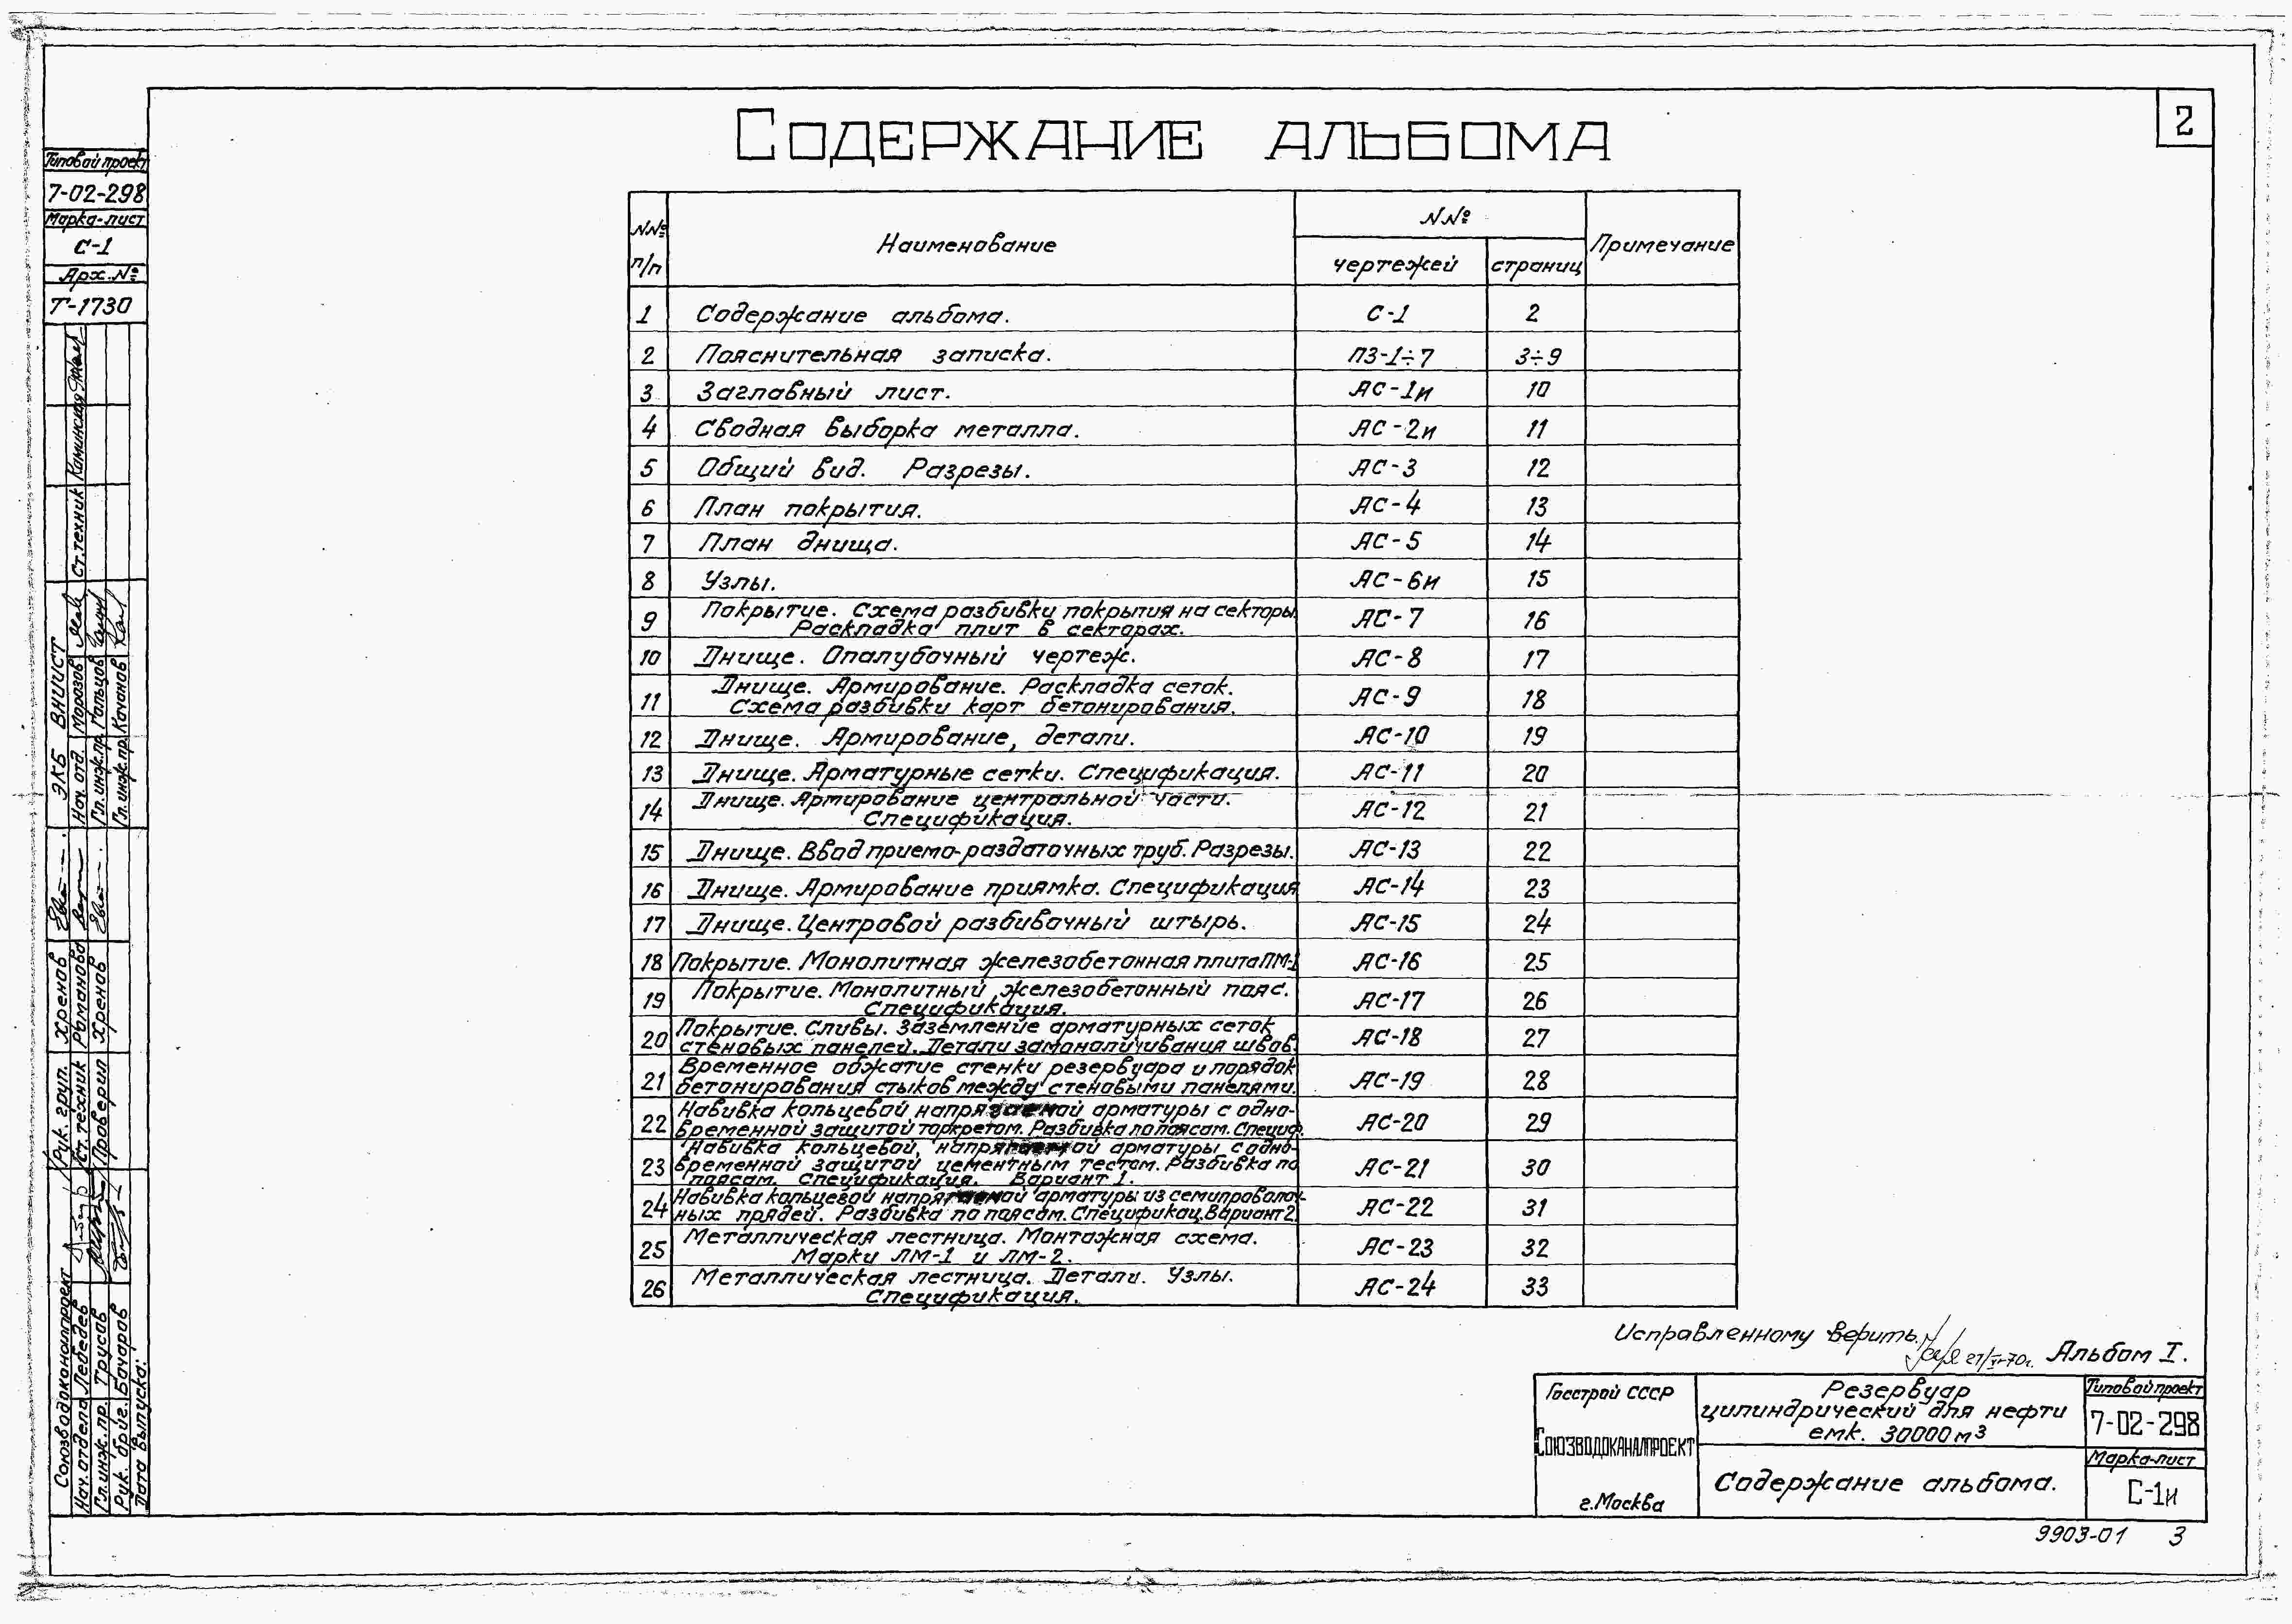 2
Содержание альбома
Типовой проект
7-02-298
Марка-лист
С-1
Арх. №
Т-1730
Ст. техник Каминская
ЭКБ ВНИИСТ
Нач. отд. Морозов
Гл. инж. пр. Гальцов
Гл. инж. пр. Качанов
Рук. груп. Хренов
Ст. техник Романнова
Проверил Хренов
Союзводоканалпроект
Нач. отдела Лебедев
Гл. инж. пр. Трусов
Рук. бриг. Бочаров
Дата выпуска:
NN° п/п Наименование NN° чертежей страниц Примечание
1 Содержание альбома. С-1 2
2 Пояснительная записка. ПЗ-1÷7 3÷9
3 Заглавный лист. АС-1и 10
4 Сводная выборка металла. АС-2и 11
5 Общий вид. Разрезы. АС-3 12
6 План покрытия. АС-4 13
7 План днища. АС-5 14
8 Узлы. АС-6и 15
9 Покрытие. Схема разбивки покрытия на секторы.
Раскладка плит в секторах. АС-7 16
10 Днище. Опалубочный чертеж. АС-8 17
11 Днище. Армирование. Раскладка сеток.
Схема разбивки карт бетонирования. АС-9 18
12 Днище. Армирование, детали. АС-10 19
13 Днище. Арматурные сетки. Спецификация. АС-11 20
14 Днище. Армирование центральной части.
Спецификация. АС-12 21
15 Днище. Ввод приемо-раздаточных труб. Разрезы. АС-13 22
16 Днище. Армирование приямка. Спецификация АС-14 23
17 Днище. Центровой разбивочный штырь. АС-15 24
18 Покрытие. Монолитная железобетонная плита ПМ-1 АС-16 25
19 Покрытие. Монолитный железобетонный пояс.
Спецификация. АС-17 26
20 Покрытие. Сливы. Заземление арматурных сеток
стеновых панелей. Детали замоноличивания швов. АС-18 27
21 Временное обжатие стенки резервуара и порядок
бетонирования стыков между стеновыми панелями. АС-19 28
22 Навивка кольцевой напрягаемой арматуры с одно-
временной защитой торкретом. Разбивка по поясам. Специф. АС-20 29
23 Навивка кольцевой, напрягаемой арматуры с одно-
временной защитой цементным тестом. Разбивка по
поясам. Спецификация. Вариант 1. АС-21 30
24 Навивка кольцевой напрягаемой арматуры из семипроволоч-
ных прядей. Разбивка по поясам. Спецификац. Вариант 2. АС-22 31
25 Металлическая лестница. Монтажная схема.
Марки ЛМ-1 и ЛМ-2. АС-23 32
26 Металлическая лестница. Детали. Узлы.
Спецификация. АС-24 33
Исправленному верить.
Альбом I.
Госстрой СССР
Союзводоканалпроект
г. Москва
Резервуар
цилиндрический для нефти
емк. 30000 м³
Содержание альбома.
Типовой проект
7-02-298
Марка-лист
С-1и
9903-01 3